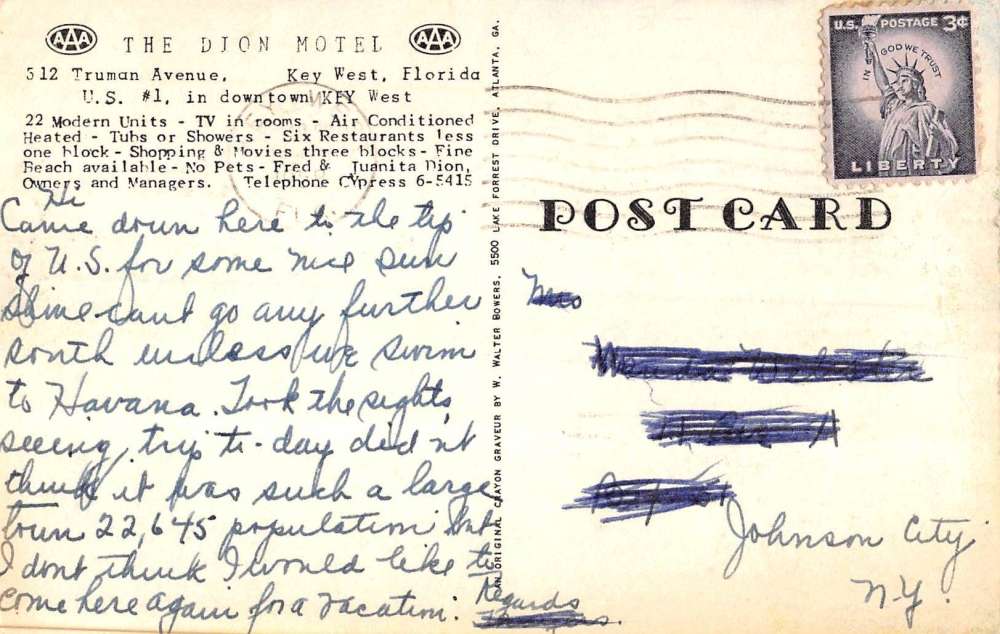 AAA THE DION MOTEL AAA
512 Truman Avenue, Key West, Florida
U.S. #1, in downtown KEY West
22 Modern Units - TV in rooms - Air Conditioned
Heated - Tubs or Showers - Six Restaurants less
one block - Shopping & Movies three blocks - Fine
Beach available - No Pets - Fred & Juanita Dion,
Owners and Managers. Telephone CYpress 6-5415
Hi
Came down here to the tip
of U.S. for some nice sun
shine - cant go any further
south unless we swim
to Havana. Took the sights
seeing trip to-day did'nt
think it was such a large
town 22,645 population but
I dont think I would like to
come here again for a vacation.
Regards
AN ORIGINAL CRAYON GRAVEUR BY W. WALTER BOWERS, 5500 LAKE FORREST DRIVE, ATLANTA, GA.
U.S. POSTAGE 3¢
IN GOD WE TRUST
LIBERTY
POST CARD
Mrs
Johnson City
N.Y.